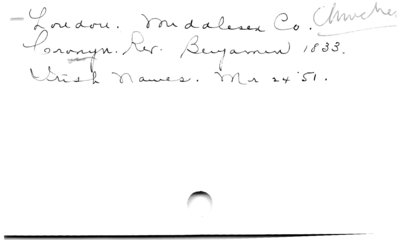 London. Middlesex Co. Churches
Cronyn. Rev. Benjamin 1833.
Irish Names. Mr 24 '51.